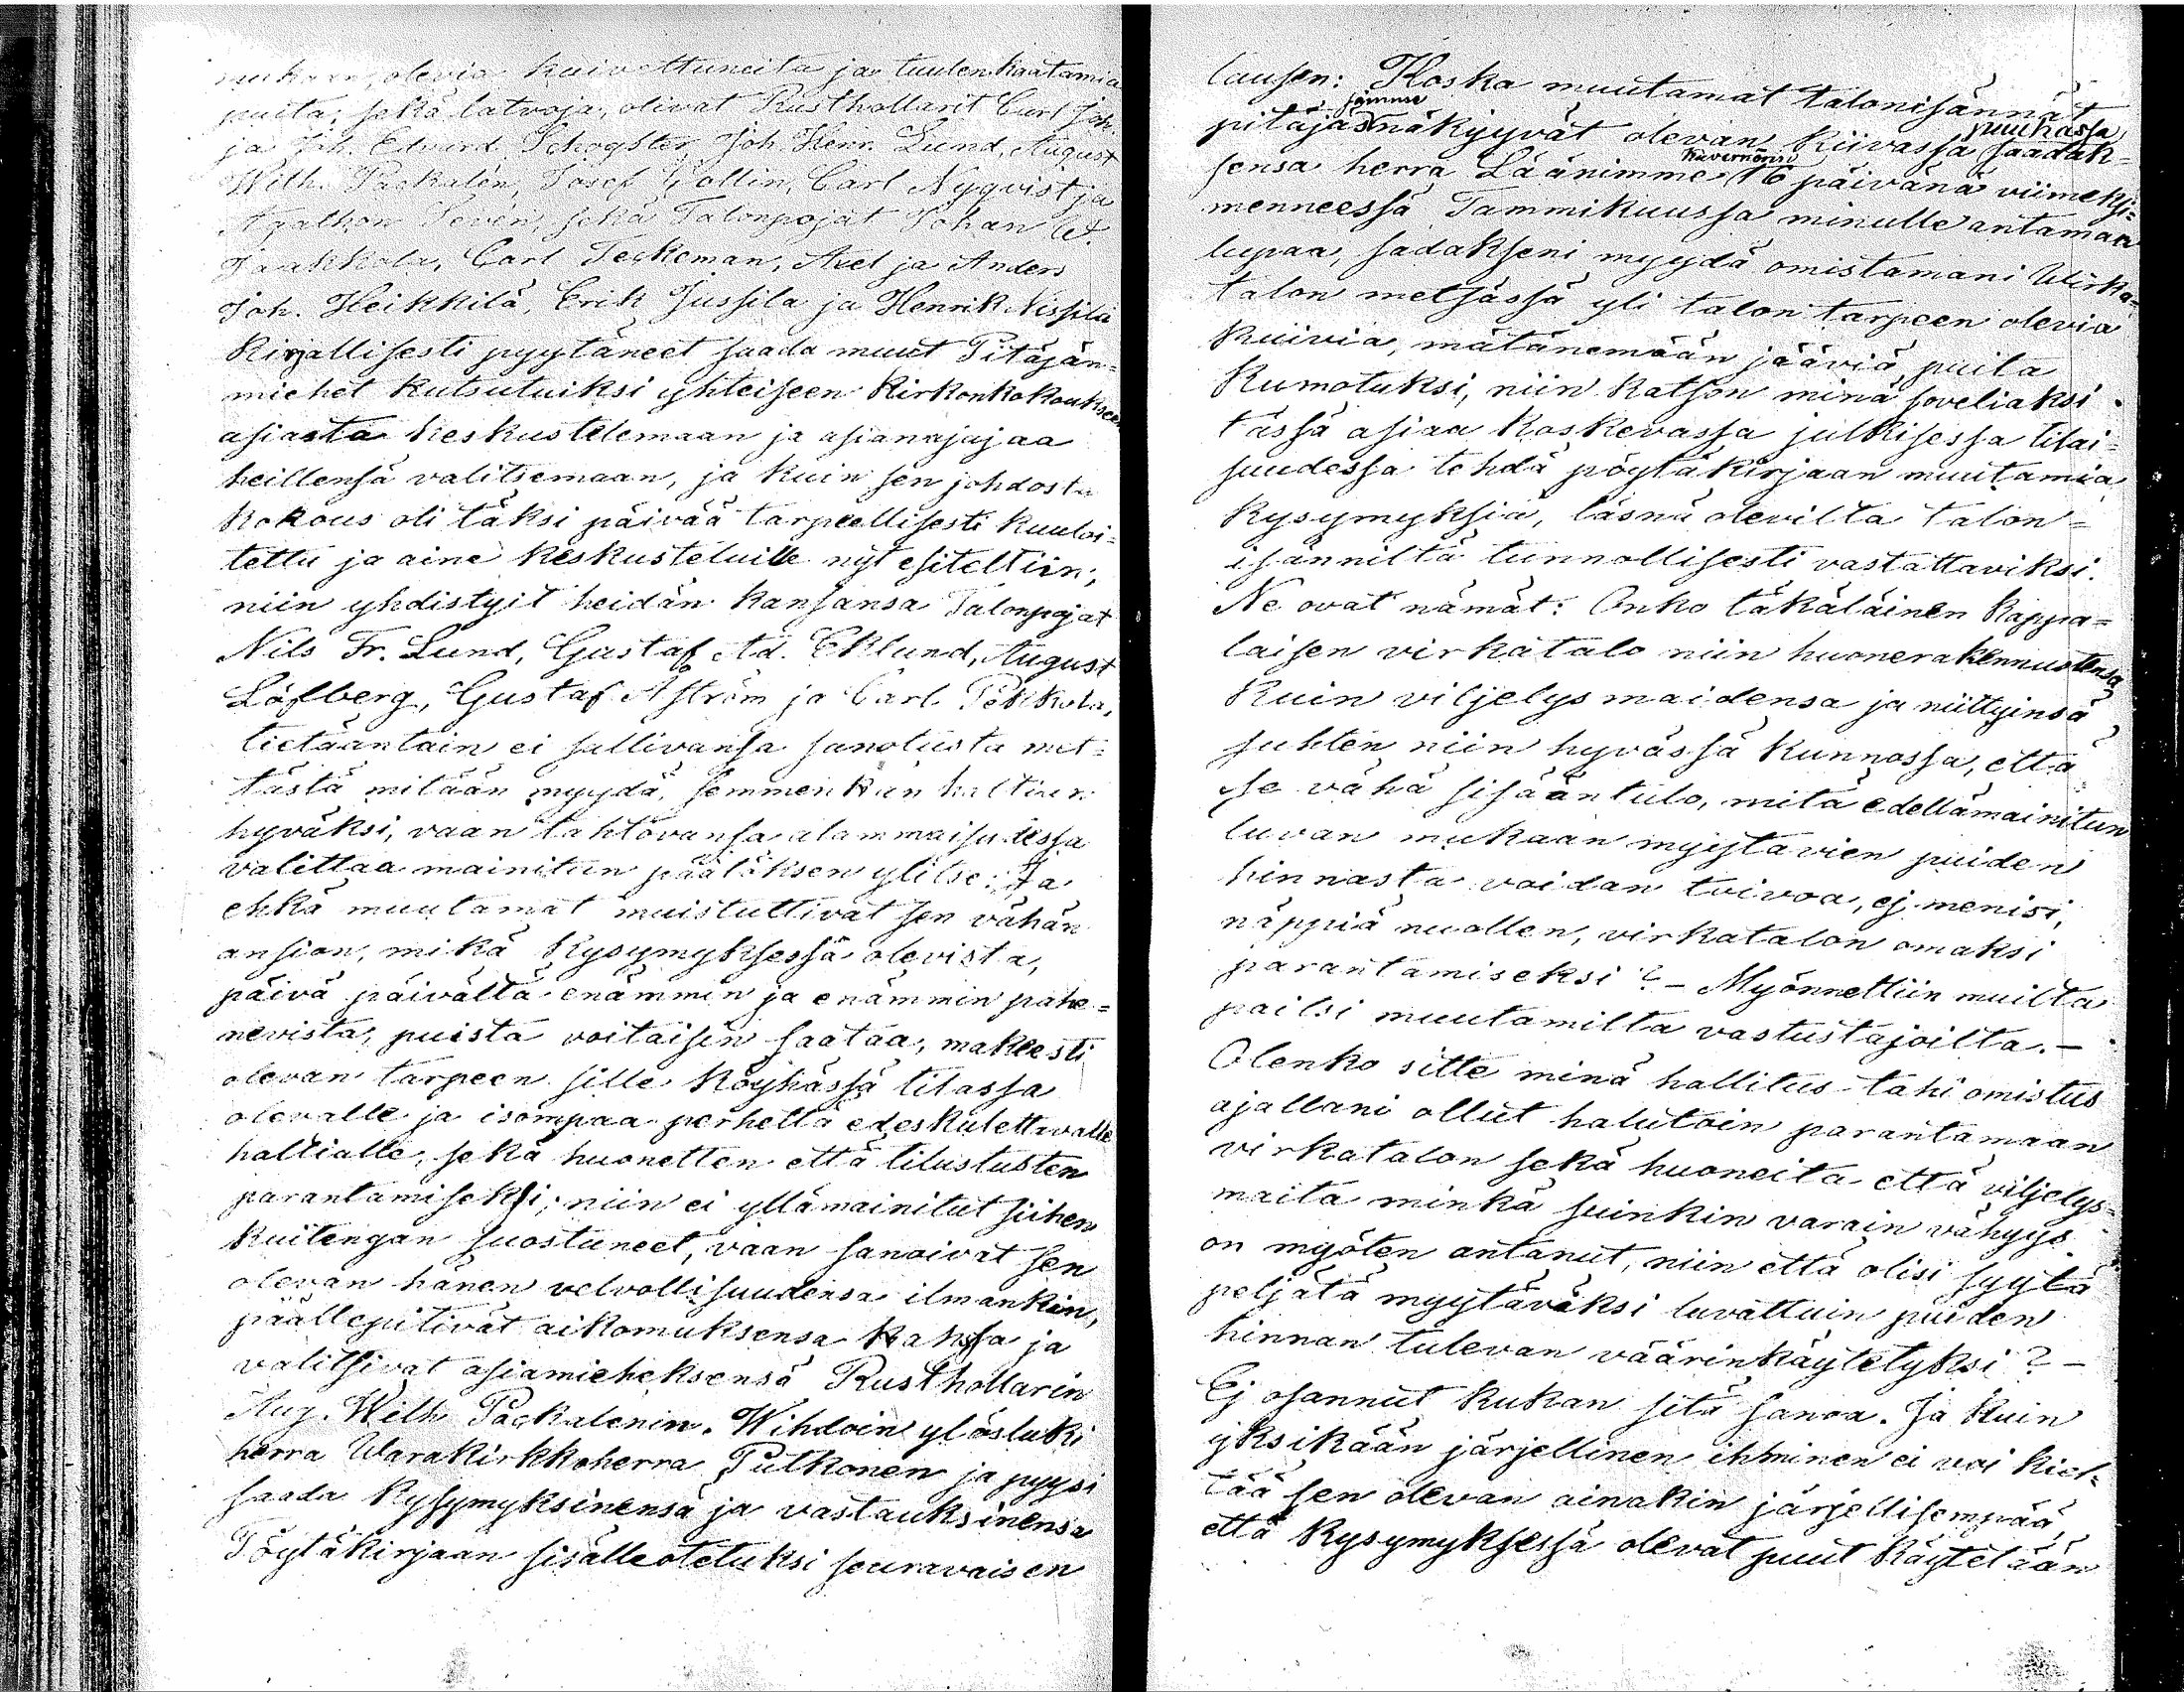 mukaan, olevia kuivettuneita ja tuulen kaatamia
puita, sekä latvoja, olivat Rusthollarit Carl Joh.
ja Joh. Edvard Schogster, Joh. Henr. Lund, August
Wilh. Packalén, Josef Gollin, Carl Nyqvist ja
Sevén, sekä Talonpojat Johan
Jaakkola, Carl Teckeman, Axel ja Anders
Joh. Heikkilä, Erik Jussila ja Henrik Nissilä
Kirjallisesti pyytäneet saada muut Pitäjän=
miehet kutsutuiksi yhteiseen Kirkonkokoukseen
asiasta keskustelemaan ja asianajajaa
heillensä valitsemaan, ja kuin sen johdosta
Kokous oli täksi päivää tarpeellisesti kuuloi=
tettu ja aine keskusteluille nyt esiteltiin;
niin yhdistyit heidän kansansa Talonpojat
Nils Fr. Lund, Gustaf Ad. Eklund, August
Löfberg, Gustaf Aström ja Carl Pekkola,
tietääntäin ei sallivansa sanotusta met=
tästä mitään myydä, semmenkän haltian
hyväksi, vaan tahtovansa alammaisudessa
valittaa mainitun päätöksen ylitse: Ja
ehkä muutamat muistuttivat sen vähän
ansion, mikä Kysymyksessä olevista,
päivä päivältä enämmin ja enämmin pahe=
nevista, puista voitaisin saataa, makeesti
olevan tarpeen sille Köyhässä tilassa
olevalle ja isompaa perhettä edeskulettavalle
haltialle, sekä huonetten että tilustusten
parantamiseksi; niin ei yllämainitut siihen
Kuitengan suostuneet, vaan sanoivat sen
olevan hänen velvollisuudensa ilmankin,
päällepitivät aikomuksensa Kanssa ja
valitsivat asiamieheksensä Rusthollarin
Aug. Wilh. Packalenin. Wihdoin ylösluki
herra Warakirkkoherra Putkonen ja pyysi
saada Kysymyksinensä ja vastauksinensa
Pöytäkirjaan sisälleotetuksi seuravaisen
lausen: Koska muutamat talonisännät
pitäjäs sämme näkyyvät olevan kiivassa puuhassa saadak=
sensa herra Läänimme Kuvernörin 16 päivänä viimeksi=
menneessä Tammikuussa minulle antaman
lupaa, sadakseni myydä omistamani Wirka=
talon metsässä yli talon tarpeen olevia
Kuivia, mätänemään jääviä puita
Kumotuksi, niin Katson minä soveliaksi
tässä asiaa Koskevassa julkisessa tilai=
suudessa tehdä pöytäkirjaan muutamia
Kysymyksiä, läsnä olevilta talon=
isänniltä tunnollisesti vastattaviksi.
Ne ovat nämät: Onko täkäläinen Kappa=
laisen virkatalo niin huonerakennustensa
Kuin viljelys maidensa ja niittyinsä
suhten niin hyvässä Kunnossa, että
se vähä sisääntulo, mitä edellämainitun
luvan mukaan myytävien puiden
hinnasta voidan toivoa, ej menisi,
näppiä nuollen, virkatalon omaksi
parantamiseksi? – Myönnettiin muilta
paitsi muutamilta vastustajoilta. –
Olenko sitte minä hallitus- tahi omistus
ajallani ollut halutoin parantamaan
virkatalon sekä huoneita että viljelys=
maita minkä suinkin varain vähyys
on myöten antanut, niin että olisi syytä
peljätä myytäväksi luvattuin puiden
hinnan tulevan väärinkäytetyksi? –
Ej osannut kukan sitä sanoa. Ja Kuin
yksikään järjellinen ihminen ei voi kiel=
tää sen olevan ainakin järjellisempää,
että Kysymyksessä olevat puut Käytetään